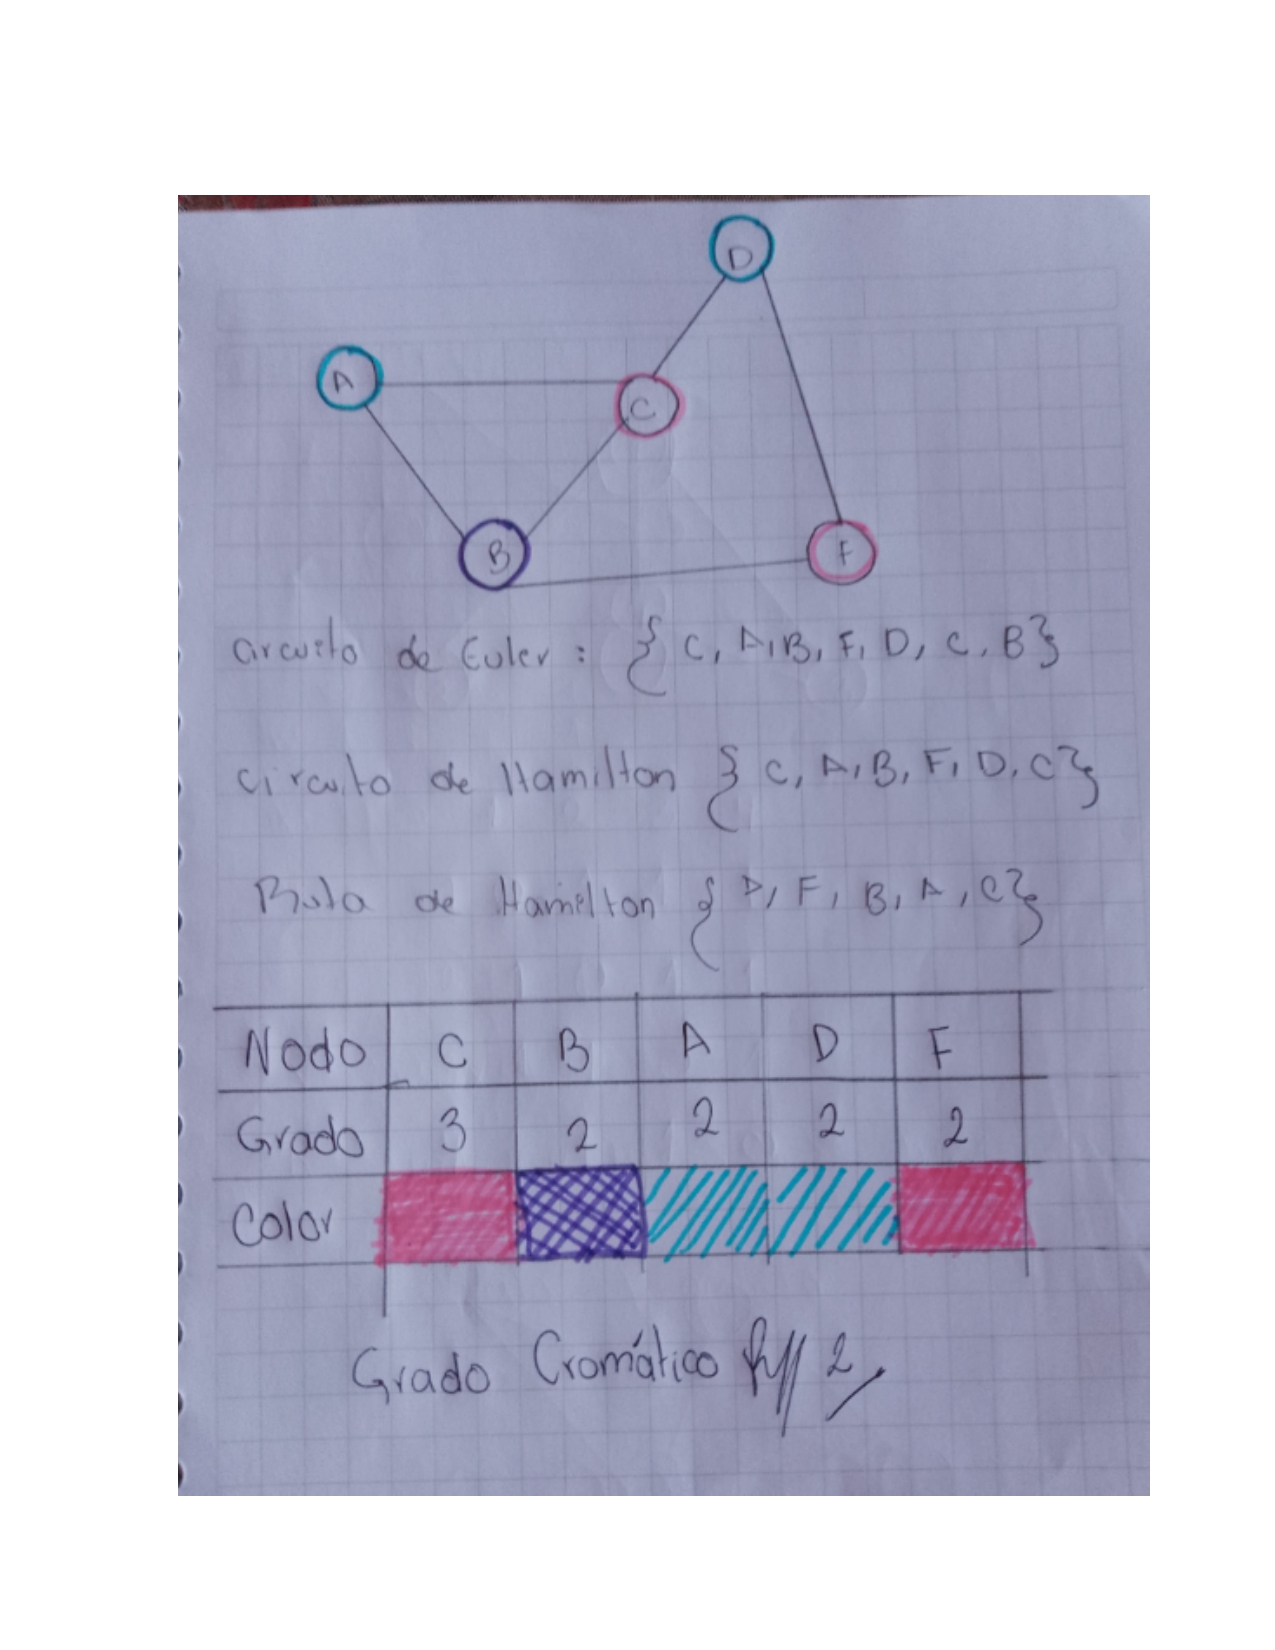 D
A
C
B
F
Circuito de Euler : { C, A, B, F, D, C, B}
Circuito de Hamilton { C, A, B, F, D, C}
Ruta de Hamilton { D, F, B, A, C}
Nodo C B A D F
Grado 3 2 2 2 2
Color
Grado Cromático 2